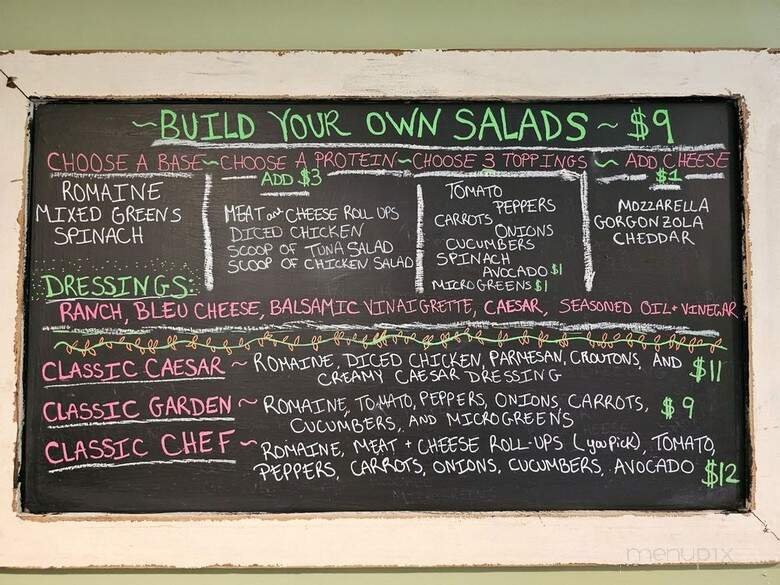 ~BUILD YOUR OWN SALADS ~ $9
CHOOSE A BASE~CHOOSE A PROTEIN~CHOOSE 3 TOPPINGS ~ ADD CHEESE
ADD $3
$1
ROMAINE
MIXED GREENS
SPINACH
MEAT and CHEESE ROLL UPS
DICED CHICKEN
SCOOP OF TUNA SALAD
SCOOP OF CHICKEN SALAD
TOMATO
PEPPERS
CARROTS
ONIONS
CUCUMBERS
SPINACH
AVOCADO $1
MICROGREENS $1
MOZZARELLA
GORGONZOLA
CHEDDAR
DRESSINGS:
RANCH, BLEU CHEESE, BALSAMIC VINAIGRETTE, CAESAR, SEASONED OIL + VINEGAR
CLASSIC CAESAR ~ ROMAINE, DICED CHICKEN, PARMESAN, CROUTONS, AND
CREAMY CAESAR DRESSING
$11
CLASSIC GARDEN ~ ROMAINE, TOMATO, PEPPERS, ONIONS, CARROTS,
CUCUMBERS, AND MICROGREENS
$9
CLASSIC CHEF ~ ROMAINE, MEAT + CHEESE ROLL-UPS (you pick), TOMATO,
PEPPERS, CARROTS, ONIONS, CUCUMBERS, AVOCADO $12
menupix